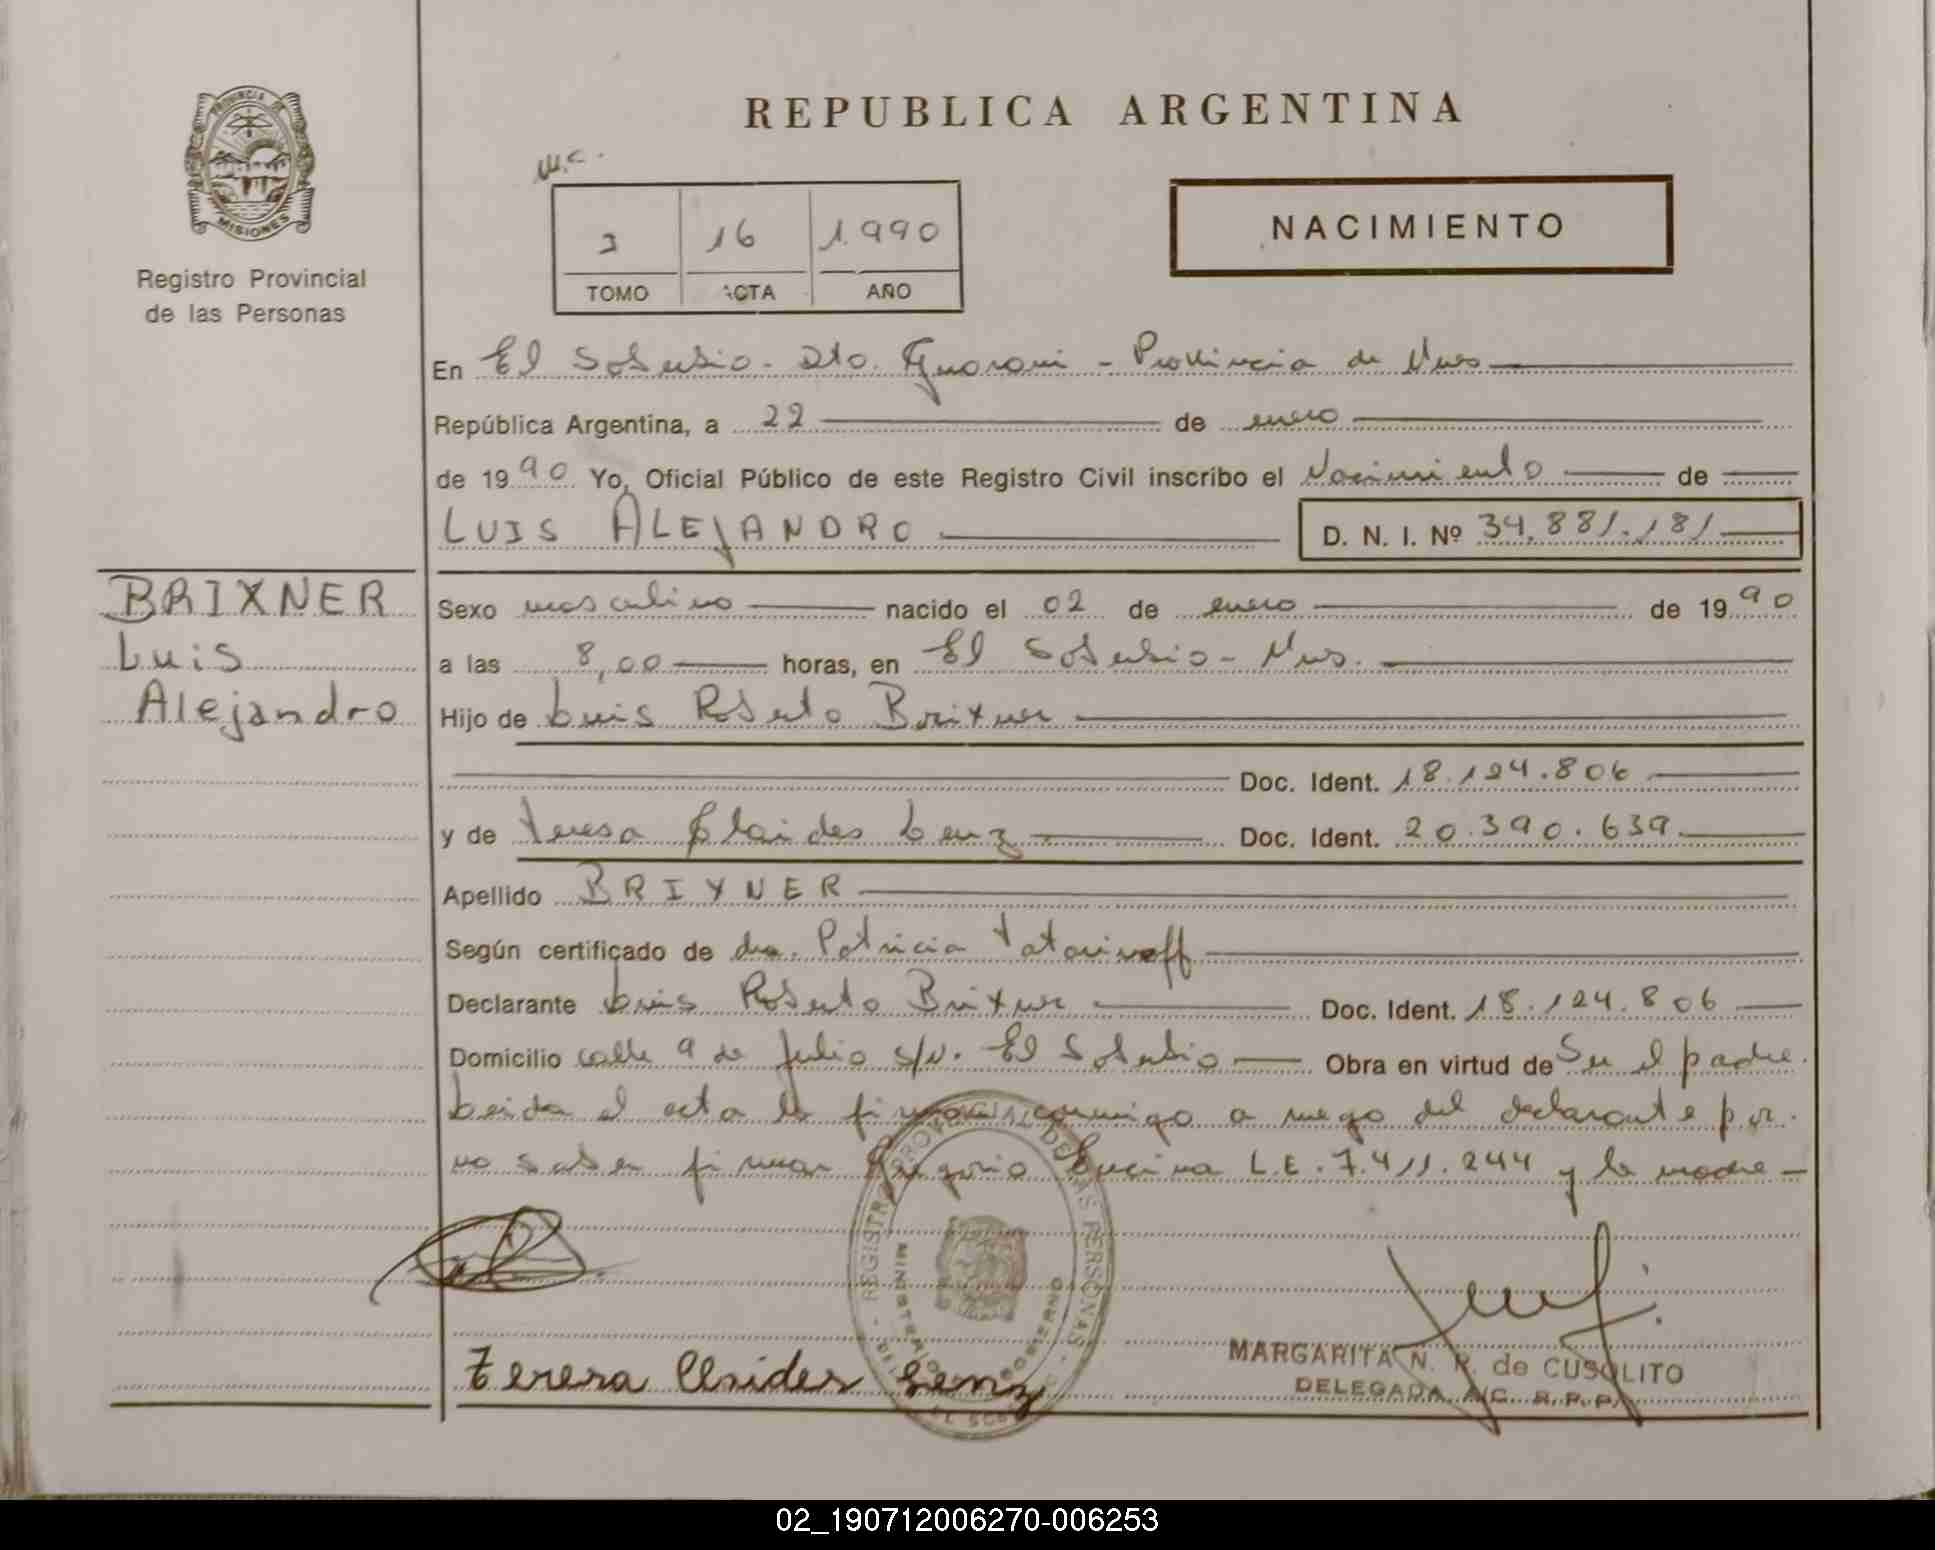 PROVINCIA DE
MISIONES
Registro Provincial
de las Personas
REPUBLICA ARGENTINA
NACIMIENTO
16 1990
TOMO ACTA AÑO
En El Soberbio - Dto. Guarani - Provincia de Mnes
República Argentina, a 22 de enero
de 1990 Yo, Oficial Público de este Registro Civil inscribo el Nacimiento de
LUIS ALEJANDRO D. N. I. Nº 34.881.181
BRIXNER
Luis
Alejandro
Sexo masculino nacido el 02 de enero de 1990
a las 8,00 horas, en El Soberbio - Mnes.
Hijo de Luis Roberto Brixner
Doc. Ident. 18.124.806
y de Teresa Elaides Lenz Doc. Ident. 20.390.639
Apellido BRIXNER
Según certificado de dra. Patricia Tatarinoff
Declarante Luis Roberto Brixner Doc. Ident. 18.124.806
Domicilio calle 9 de Julio s/n. El Soberbio Obra en virtud de Ser el padre.
Leida el acta la firman conmigo a ruego del declarante por
no saber firmar Gregorio Encina L.E. 7.411.244 y la madre
REGISTRO PROVINCIAL DE LAS PERSONAS
MINISTERIO DE GOBIERNO
Teresa Lenz
MARGARITA N. R. de CUSOLITO
DELEGADA A/C. R.P.P.
02_190712006270-006253